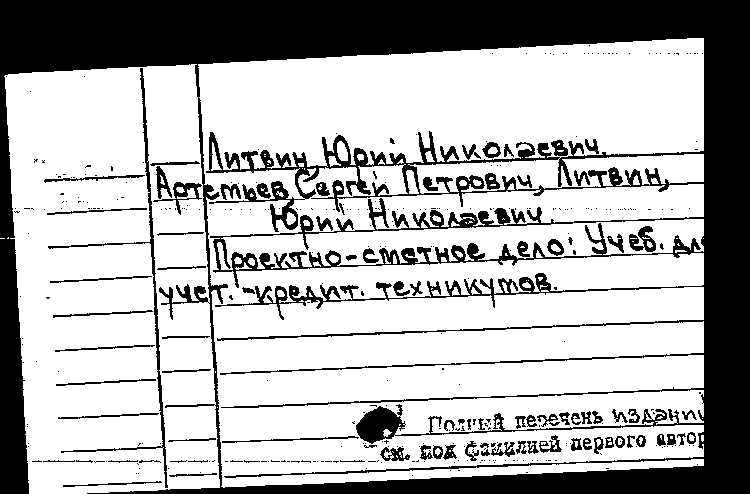 Литвин, Юрий Николаевич.
Артемьев Сергей Петрович, Литвин,
Юрий Николаевич.
Проектно-сметное дело: Учеб. для
учет.-кредит. техникумов.
Полный перечень издани
см. под фамилией первого автор